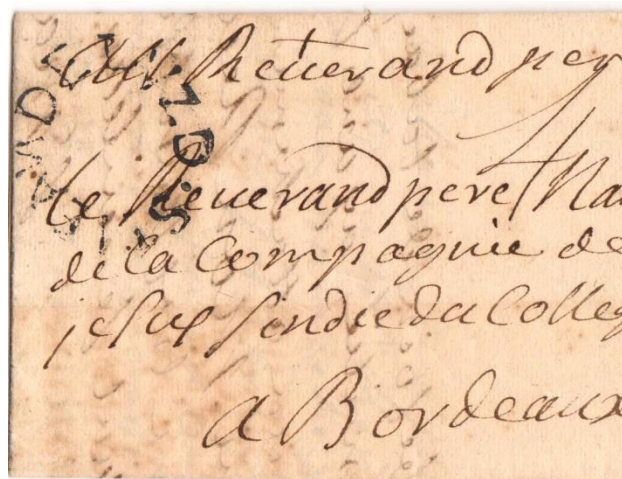 Reuerand per
le Reuerand pere Na
de la Compagnie de
jesus sindic du Colleg
a Bordeaux